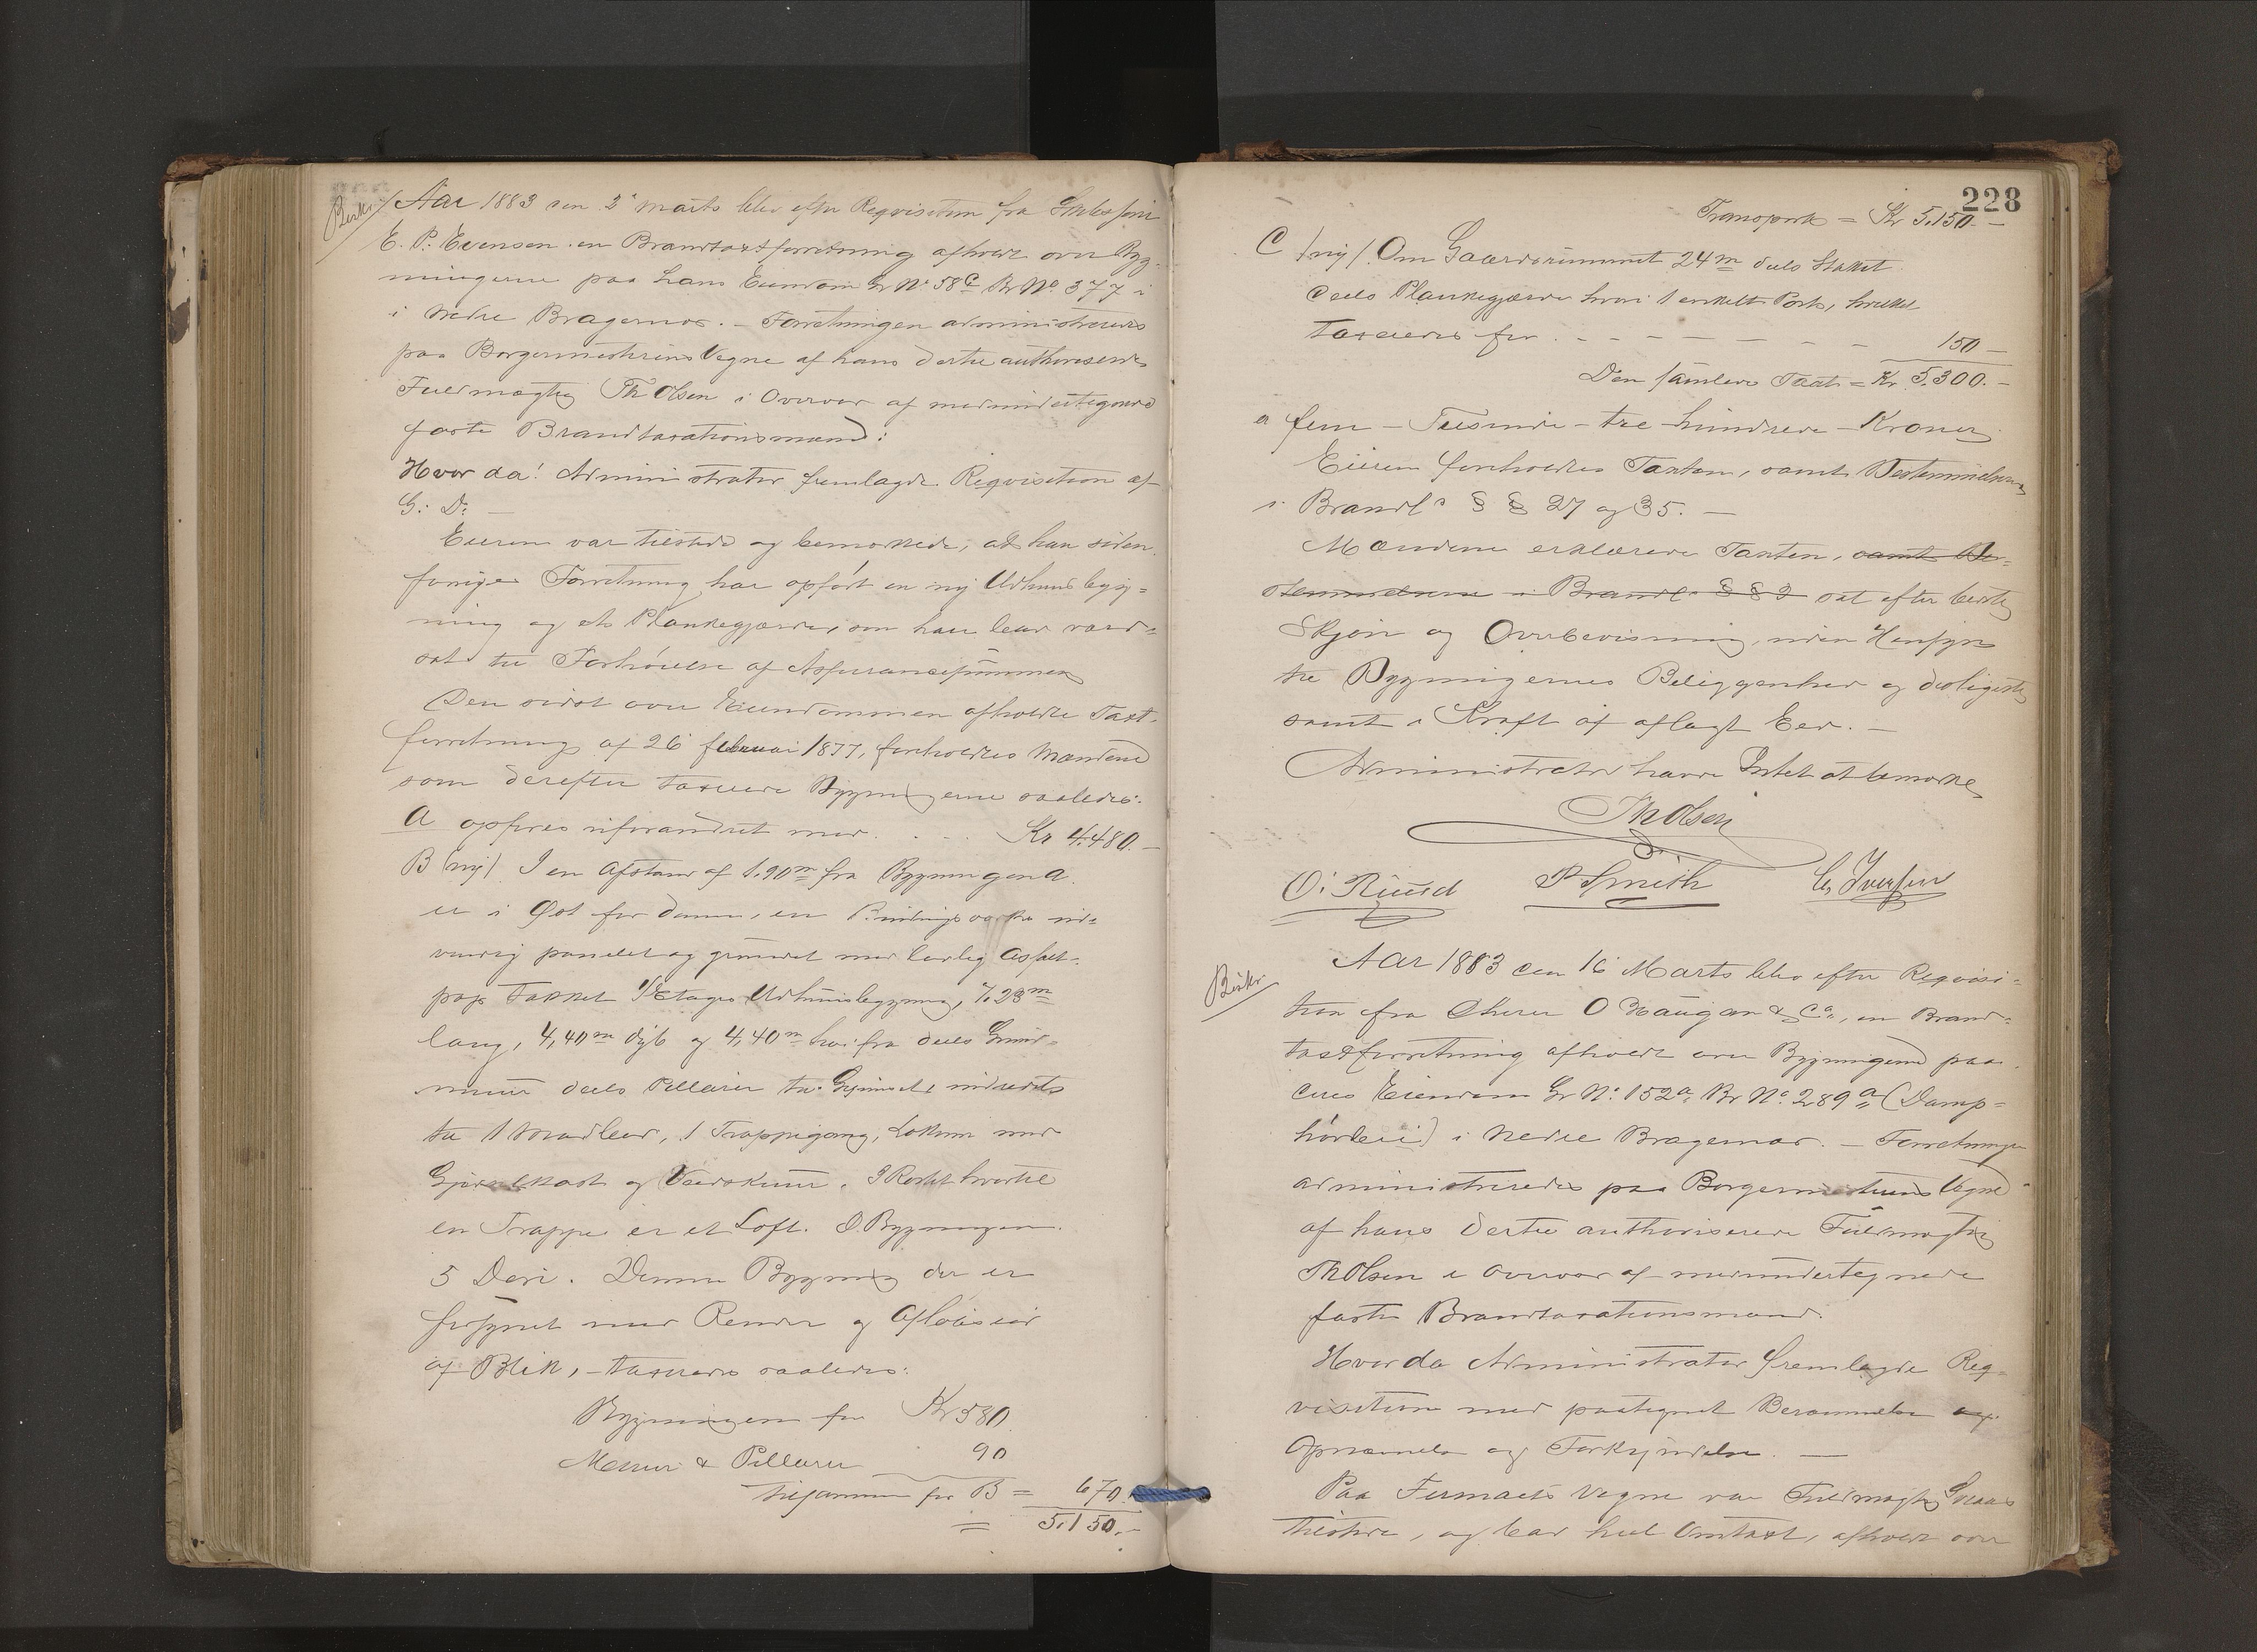 Birks
Aar 1883 den 2' Marts blev efter Reqvisition fra
E. P. Evensen en Brandtaxtforretning afholdt over Byg-
ningerne paa hans Eiendom Gr No 58c Br No 377 i
i Nedre Bragernæs. - Forretningen administreredes
paa Borgermesterens Vegne af hans dertil authoriserede
Fuldmægtig Th Olsen i Overvær af medundertegnede
faste Brandtaxationsmænd:
Hvor da! Administrator fremlagde Reqvisition af
G: D:
Eieren var tilstede og bemærkede, at han siden
forrige Forretning har opført en ny Udhuusbyg-
ning og et Plankegjærde, som han bad værd-
sat til Forhøielse af Assurancesummen
Den sidst over Eiendommen afholdte Taxt-
forretning af 26 februar 1877, foreholdtes Mændene
som derefter taxerede Bygningerne saaledes:
A opføres uforandret med . . - Kr 4.480.-
B (ny) I en Afstand af 1.90m fra Bygningen A.
er i Øst for denne, en Bindingsværks ud-
vendig panelet og grundet med lovlig Asfalt-
pap tækket 1 Etages Udhuusbygning, 7.23m
lang, 4,40m dyb og 4,40m høi fra deels Grund-
muur deels Pillarer til Gesimset, indredet
til 1 Madbod, 1 Trappegang, Lokum med
og Vedskuur. hvortil
en Trappe er et Loft. I Bygningen
5 Døre. Denne Bygning der er
forsynet med Render og Afløbsrør
af Blik, - taxeredes saaledes:
Bygningen for Kr 580.
Muur & Pillarer 90
tilsammen for B = 670.
= 5.150.-
228
Transport = Kr 5.150.-
C /ny/ Om Gaardsrummet 24m deels Stakit
deels Plankegjærde hvori 1 enkelt Port, hvilket
taxeredes for . - - - - - - - 150 -
Den samlede Taxt = Kr 5.300.-
er fem - Tusinde - tre - hundrede - Kroner
Eieren foreholdtes Taxten, samt Bestemmelserne
i Brandl's § § 27 og 35. -
Mændene erklærede Taxten, samt Be-
stemmelserne i Brandl's § § 2 sat efter bedste
Skjøn og Overbeviisning, uden Hensyn
til Bygningernes Beliggenhed og deslige
samt i Kraft af aflagt Eed. -
Administrator havde Intet at bemærke
Th Olsen
O: Ruud P Smith C. Iversen
Birks
Aar 1883 den 16 Marts blev efter Reqvisi-
tion fra Dherrer O Haugan & Co, en Brand-
taxtforretning afholdt over Bygningerne paa
deres Eiendom Gr No 152a Br No 289a (Damp-
høvleri) i Nedre Bragernæs. - Forretningen
administreredes paa Borgermesterens Vegne
af hans dertil authoriserede Fuldmægtig
Th Olsen i Overvær af medundertegnede
faste Brandtaxationsmænd.
Hvor da Administrator fremlagde Req-
visition med paategnet Berammelse og
Opnævnelse og Forkyndelse. -
Paa Firmaets Vegne var Fuldmægtig
tilstede, og bad heel Omtaxt, afholdt over